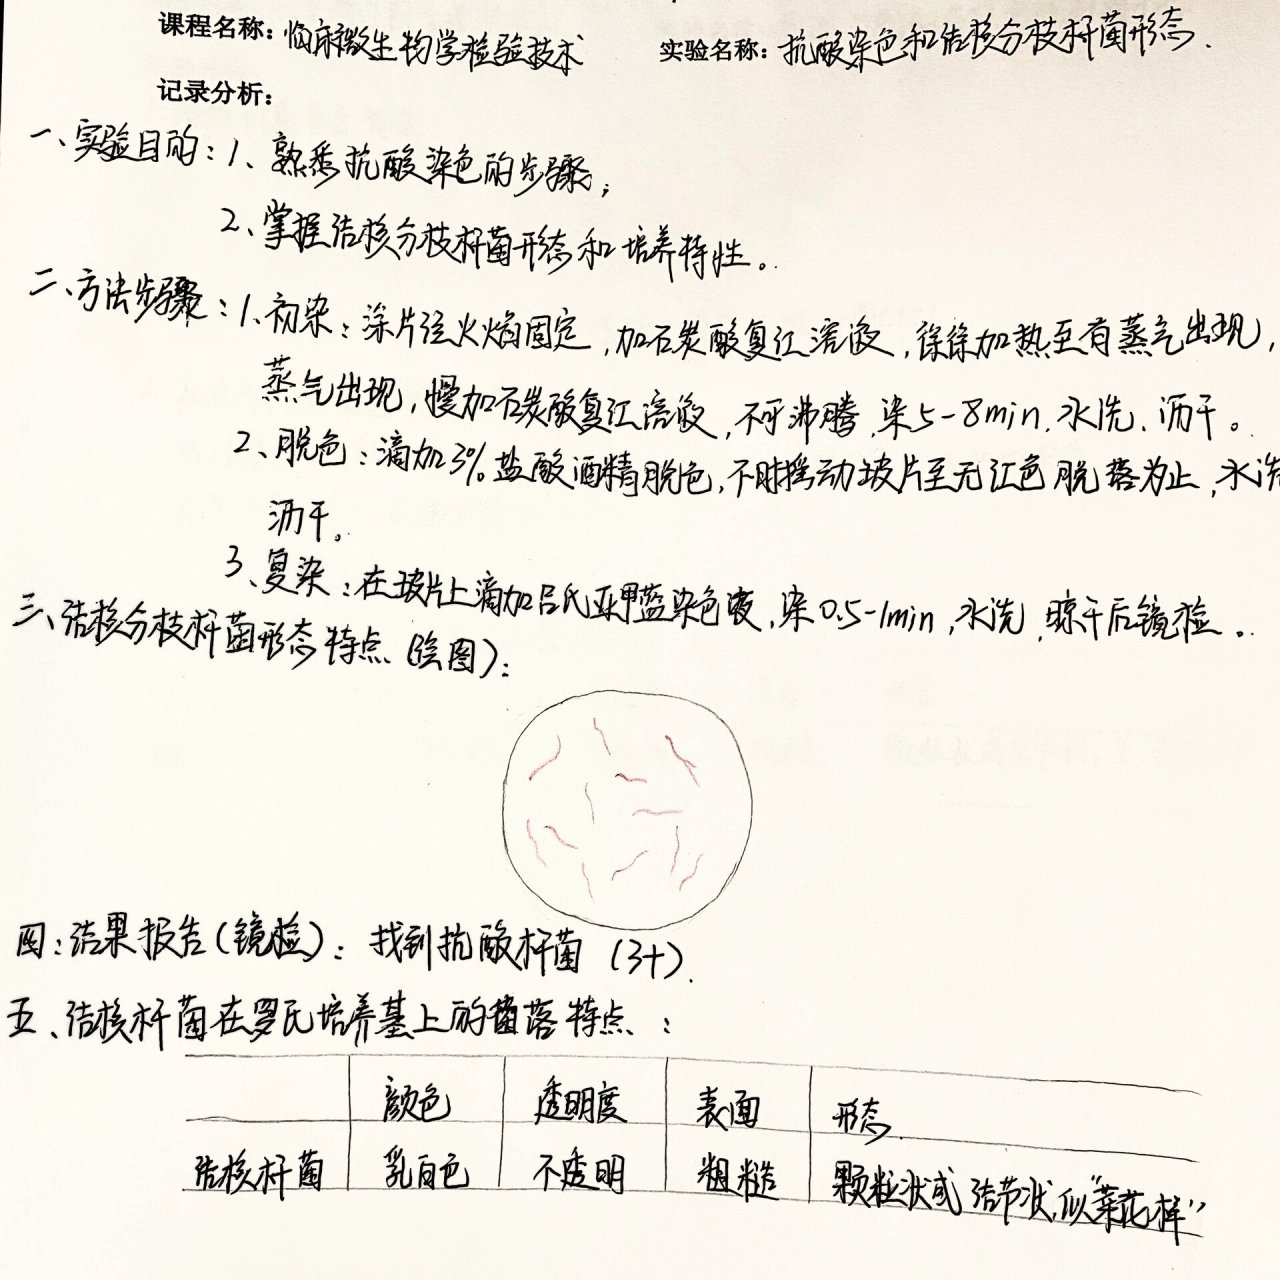 课程名称：临床微生物学检验技术 实验名称：抗酸染色和结核分枝杆菌形态．
记录分析：
一、实验目的：1、熟悉抗酸染色的步骤；
2、掌握结核分枝杆菌形态和培养特性。
二、方法步骤：1、初染：涂片经火焰固定，加石炭酸复红溶液，徐徐加热至有蒸气出现，
蒸气出现，慢加石炭酸复红溶液，不可沸腾，染5-8min，水洗、沥干。
2、脱色：滴加3%盐酸酒精脱色，不时摇动玻片至无红色脱落为止，水洗
沥干。
3、复染：在玻片上滴加吕氏亚甲蓝染色液，染0.5-1min，水洗，晾干后镜检。
三、结核分枝杆菌形态特点（绘图）：
四：结果报告（镜检）：找到抗酸杆菌（3+）．
五、结核杆菌在罗氏培养基上的菌落特点：
颜色 透明度 表面 形态．
结核杆菌 乳白色 不透明 粗糙 颗粒状或结节状，似“菜花样”